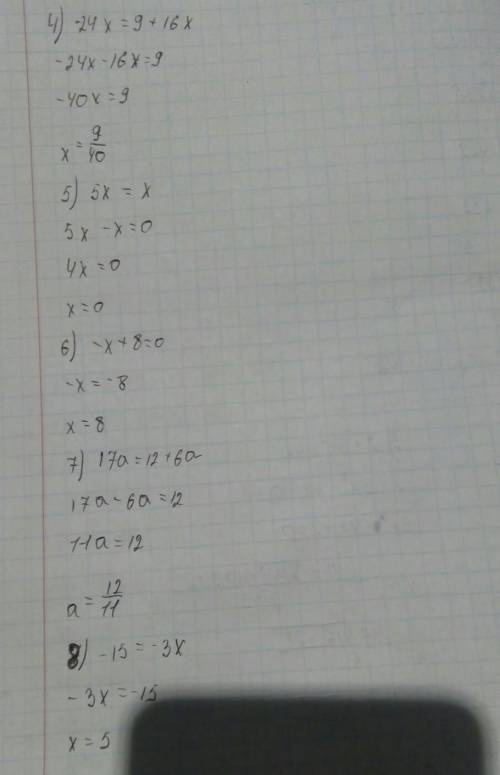 4) -24x = 9 + 16x
-24x - 16x = 9
-40x = 9
x = 9/40
5) 5x = x
5x - x = 0
4x = 0
x = 0
6) -x + 8 = 0
-x = -8
x = 8
7) 17a = 12 + 6a
17a - 6a = 12
11a = 12
a = 12/11
8) -15 = -3x
-3x = -15
x = 5